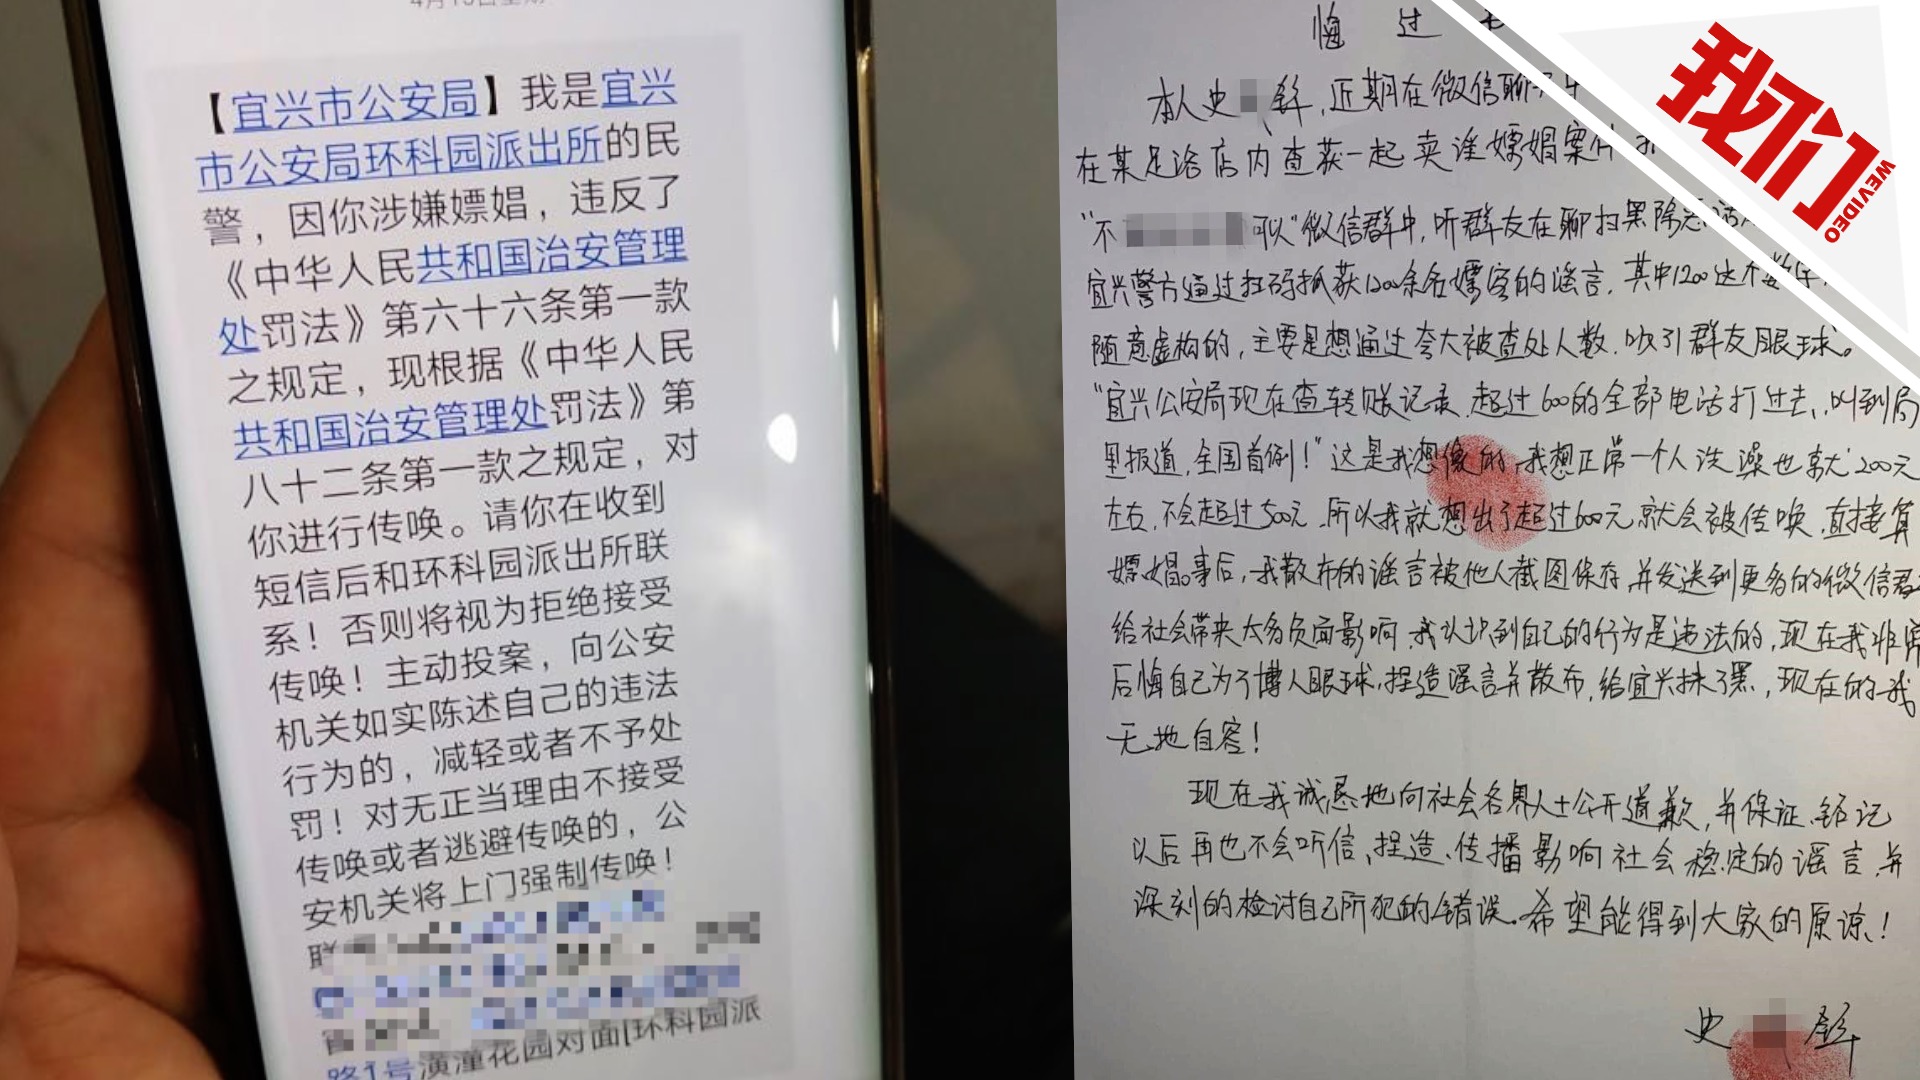 【宜兴市公安局】我是宜兴
市公安局环科园派出所的民
警，因你涉嫌嫖娼，违反了
《中华人民共和国治安管理
处罚法》第六十六条第一款
之规定，现根据《中华人民
共和国治安管理处罚法》第
八十二条第一款之规定，对
你进行传唤。请你在收到
短信后和环科园派出所联
系！否则将视为拒绝接受
传唤！主动投案，向公安
机关如实陈述自己的违法
行为的，减轻或者不予处
罚！对无正当理由不接受
传唤或者逃避传唤的，公
安机关将上门强制传唤！
联
路1号潢潼花园对面[环科园派
悔过
本人史 鉡，近期在微信聊
在某足浴店内查获一起卖淫嫖娼案件
"不 可以"微信群中，听群友在聊扫黑除恶
宜兴警方通过扫码抓获1200余名嫖客的谣言，其中1200这个数字
随意虚构的，主要是想通过夸大被查处人数，吸引群友眼球。
"宜兴公安局现在查转账记录，超过600的全部电话打过去，叫到局
里报道，全国首例！"这是我想像的，我想正常一个人洗澡也就200元
左右，不会超过500元，所以我就想出了超过600元就会被传唤，直接算
嫖娼。事后，我散布的谣言被他人截图保存，并发送到更多的微信群
给社会带来太多负面影响，我认识到自己的行为是违法的，现在我非常
后悔自己为了博人眼球，捏造谣言并散布，给宜兴抹了黑，现在的我
无地自容！
现在我诚恳地向社会各界人士公开道歉，并保证、铭记
以后再也不会听信、捏造、传播影响社会稳定的谣言，并
深刻的检讨自己所犯的错误。希望能得到大家的原谅！
史 鉡
我们
WEVIDEO